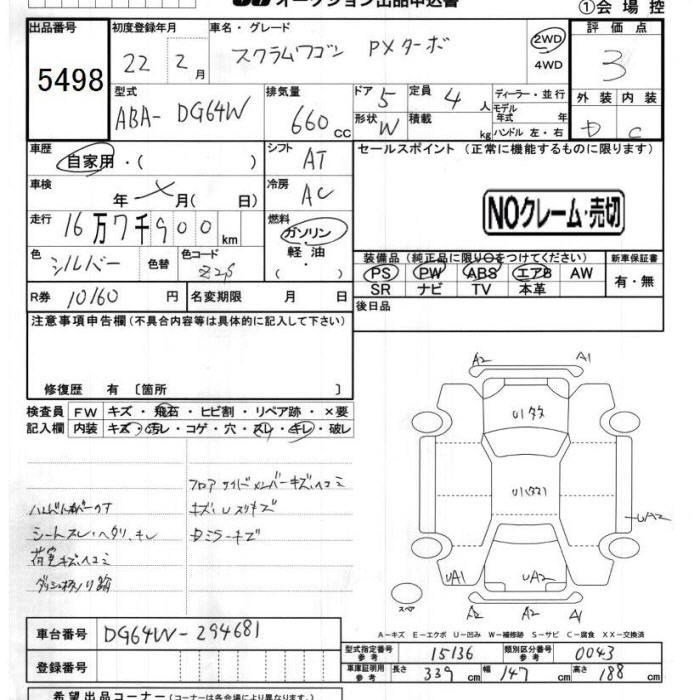 オークション出品申込書
①会場控
出品番号 初度登録年月 車名・グレード 評価点
5498 22年 2月 スクラムワゴン PXターボ 2WD 4WD 3
型式 排気量 ドア 5 定員 4人 ディーラー・並行 外装 内装
ABA- DG64W 660cc 形状 W 積載 kg モデル年式 年 ハンドル 左・右 D C
車歴 自家用・( ) シフト AT セールスポイント(正常に機能するものに限ります)
車検 年 月( 日) 冷房 AC
NOクレーム・売切
走行 16万7千900km 燃料 ガソリン・軽油・( )
色 シルバー 色替 色コード Z2S
装備品(純正品に限り○をつけてください) 新車保証書
PS PW ABS エアB AW 有・無
SR ナビ TV 本革
R券 10160円 名変期限 月 日 後日品
注意事項申告欄(不具合内容等は具体的に記入して下さい)
修復歴 有〔箇所 〕
検査員記入欄 FW キズ・飛石・ヒビ割・リペア跡・×要
内装 キズ・汚レ・コゲ・穴・スレ・キレ・破レ
A2 A1
フロアサイドメンバーキズ、ヘコミ
シートスレ・ヘタリ、キレ
荷室キズ、ヘコミ
Dミラーキズ
UA2
UA1 UA2
スペア
A2 A2 A1
A－キズ E－エクボ U－凹み W－補修跡 S－サビ C－腐食 XX－交換済
車台番号 DG64W-294681
型式指定番号 参考 15136 類別区分番号 参考 0043
登録番号
車庫証明用 参考 長さ 339cm 幅 147cm 高さ 188cm
希望出品コーナー(コーナーは各会場により異なります。)